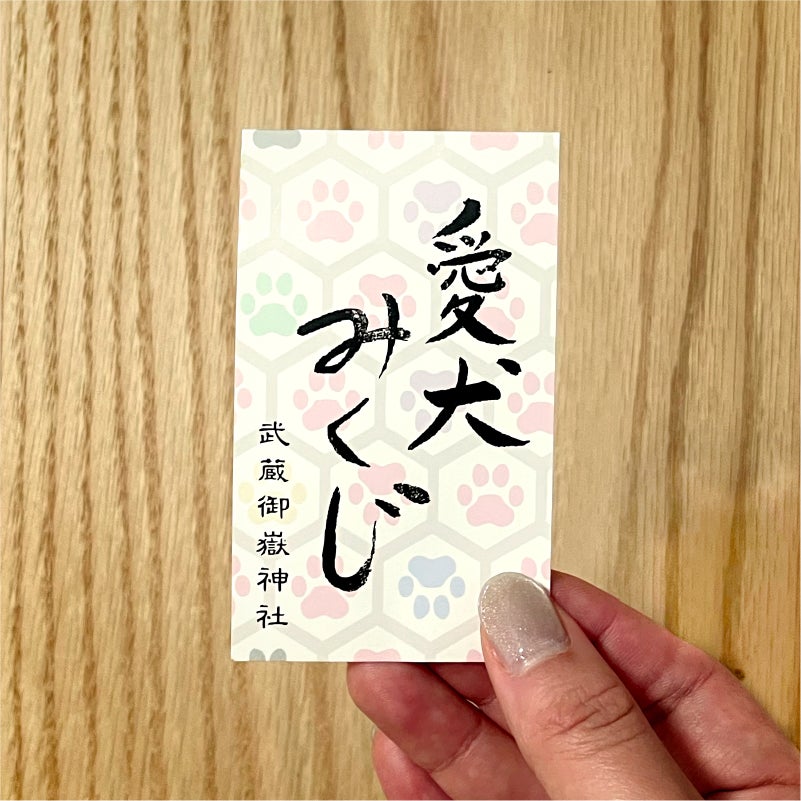 愛犬
みくじ
武蔵御嶽神社